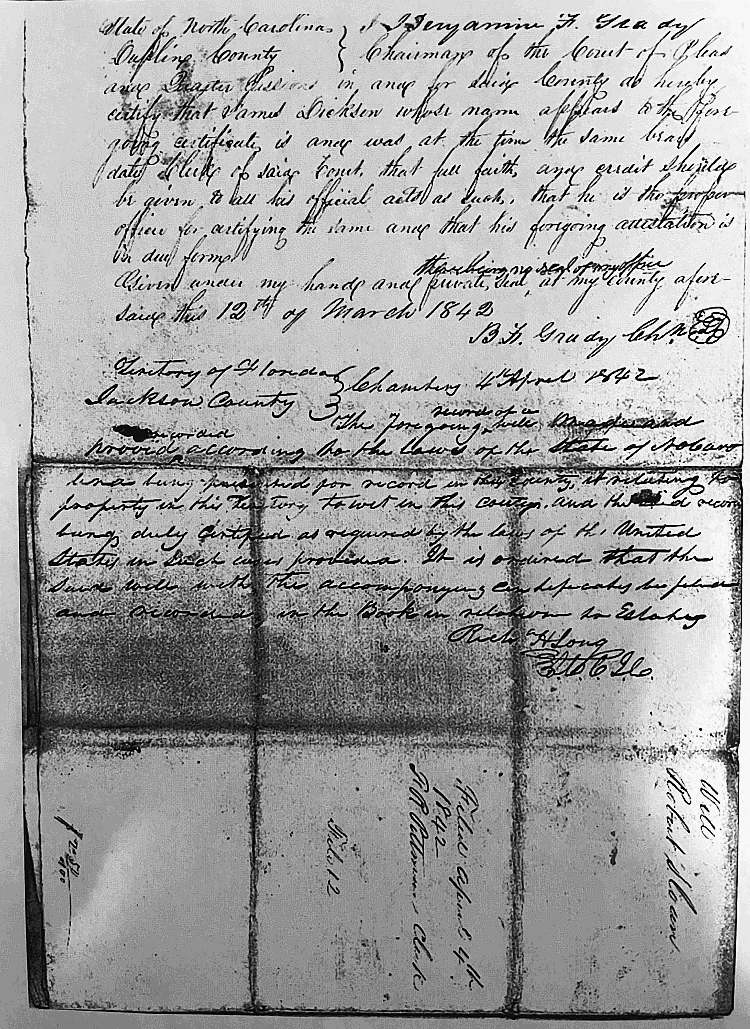 State of North Carolina } I Benjamin F. Grady
Duplin County } Chairman of the Court of Pleas
and Quarter Sessions in and for said County do hereby
certify that James Dickson whose name appears to the fore-
going certificate, is and was at the time the same bears
date, Clerk of said Court, that full faith and credit should
be given to all his official acts as such, that he is the proper
officer for certifying the same and that his foregoing attestation is
in due form.
there being no seal of my office
Given under my hand and private seal, at my County afore-
said this 12th of March 1842
B. F. Grady Chm.
Territory of Florida } Chambers 4th April 1842
Jackson County }
record of a
The foregoing will
recorded
proved according to the laws of the State of
being presented for record in this County, it relating to
property in this Territory to wit in this County, and the record
being duly Certified as required by the laws of the United
States in Such cases provided. It is ordered that the
said will with the accompanying certificates be filed
and recorded in the Book in relation to Estates
Rich H Long
Will
Robert Sloan
Filed April 4th
1842
Clerk
Fols 12